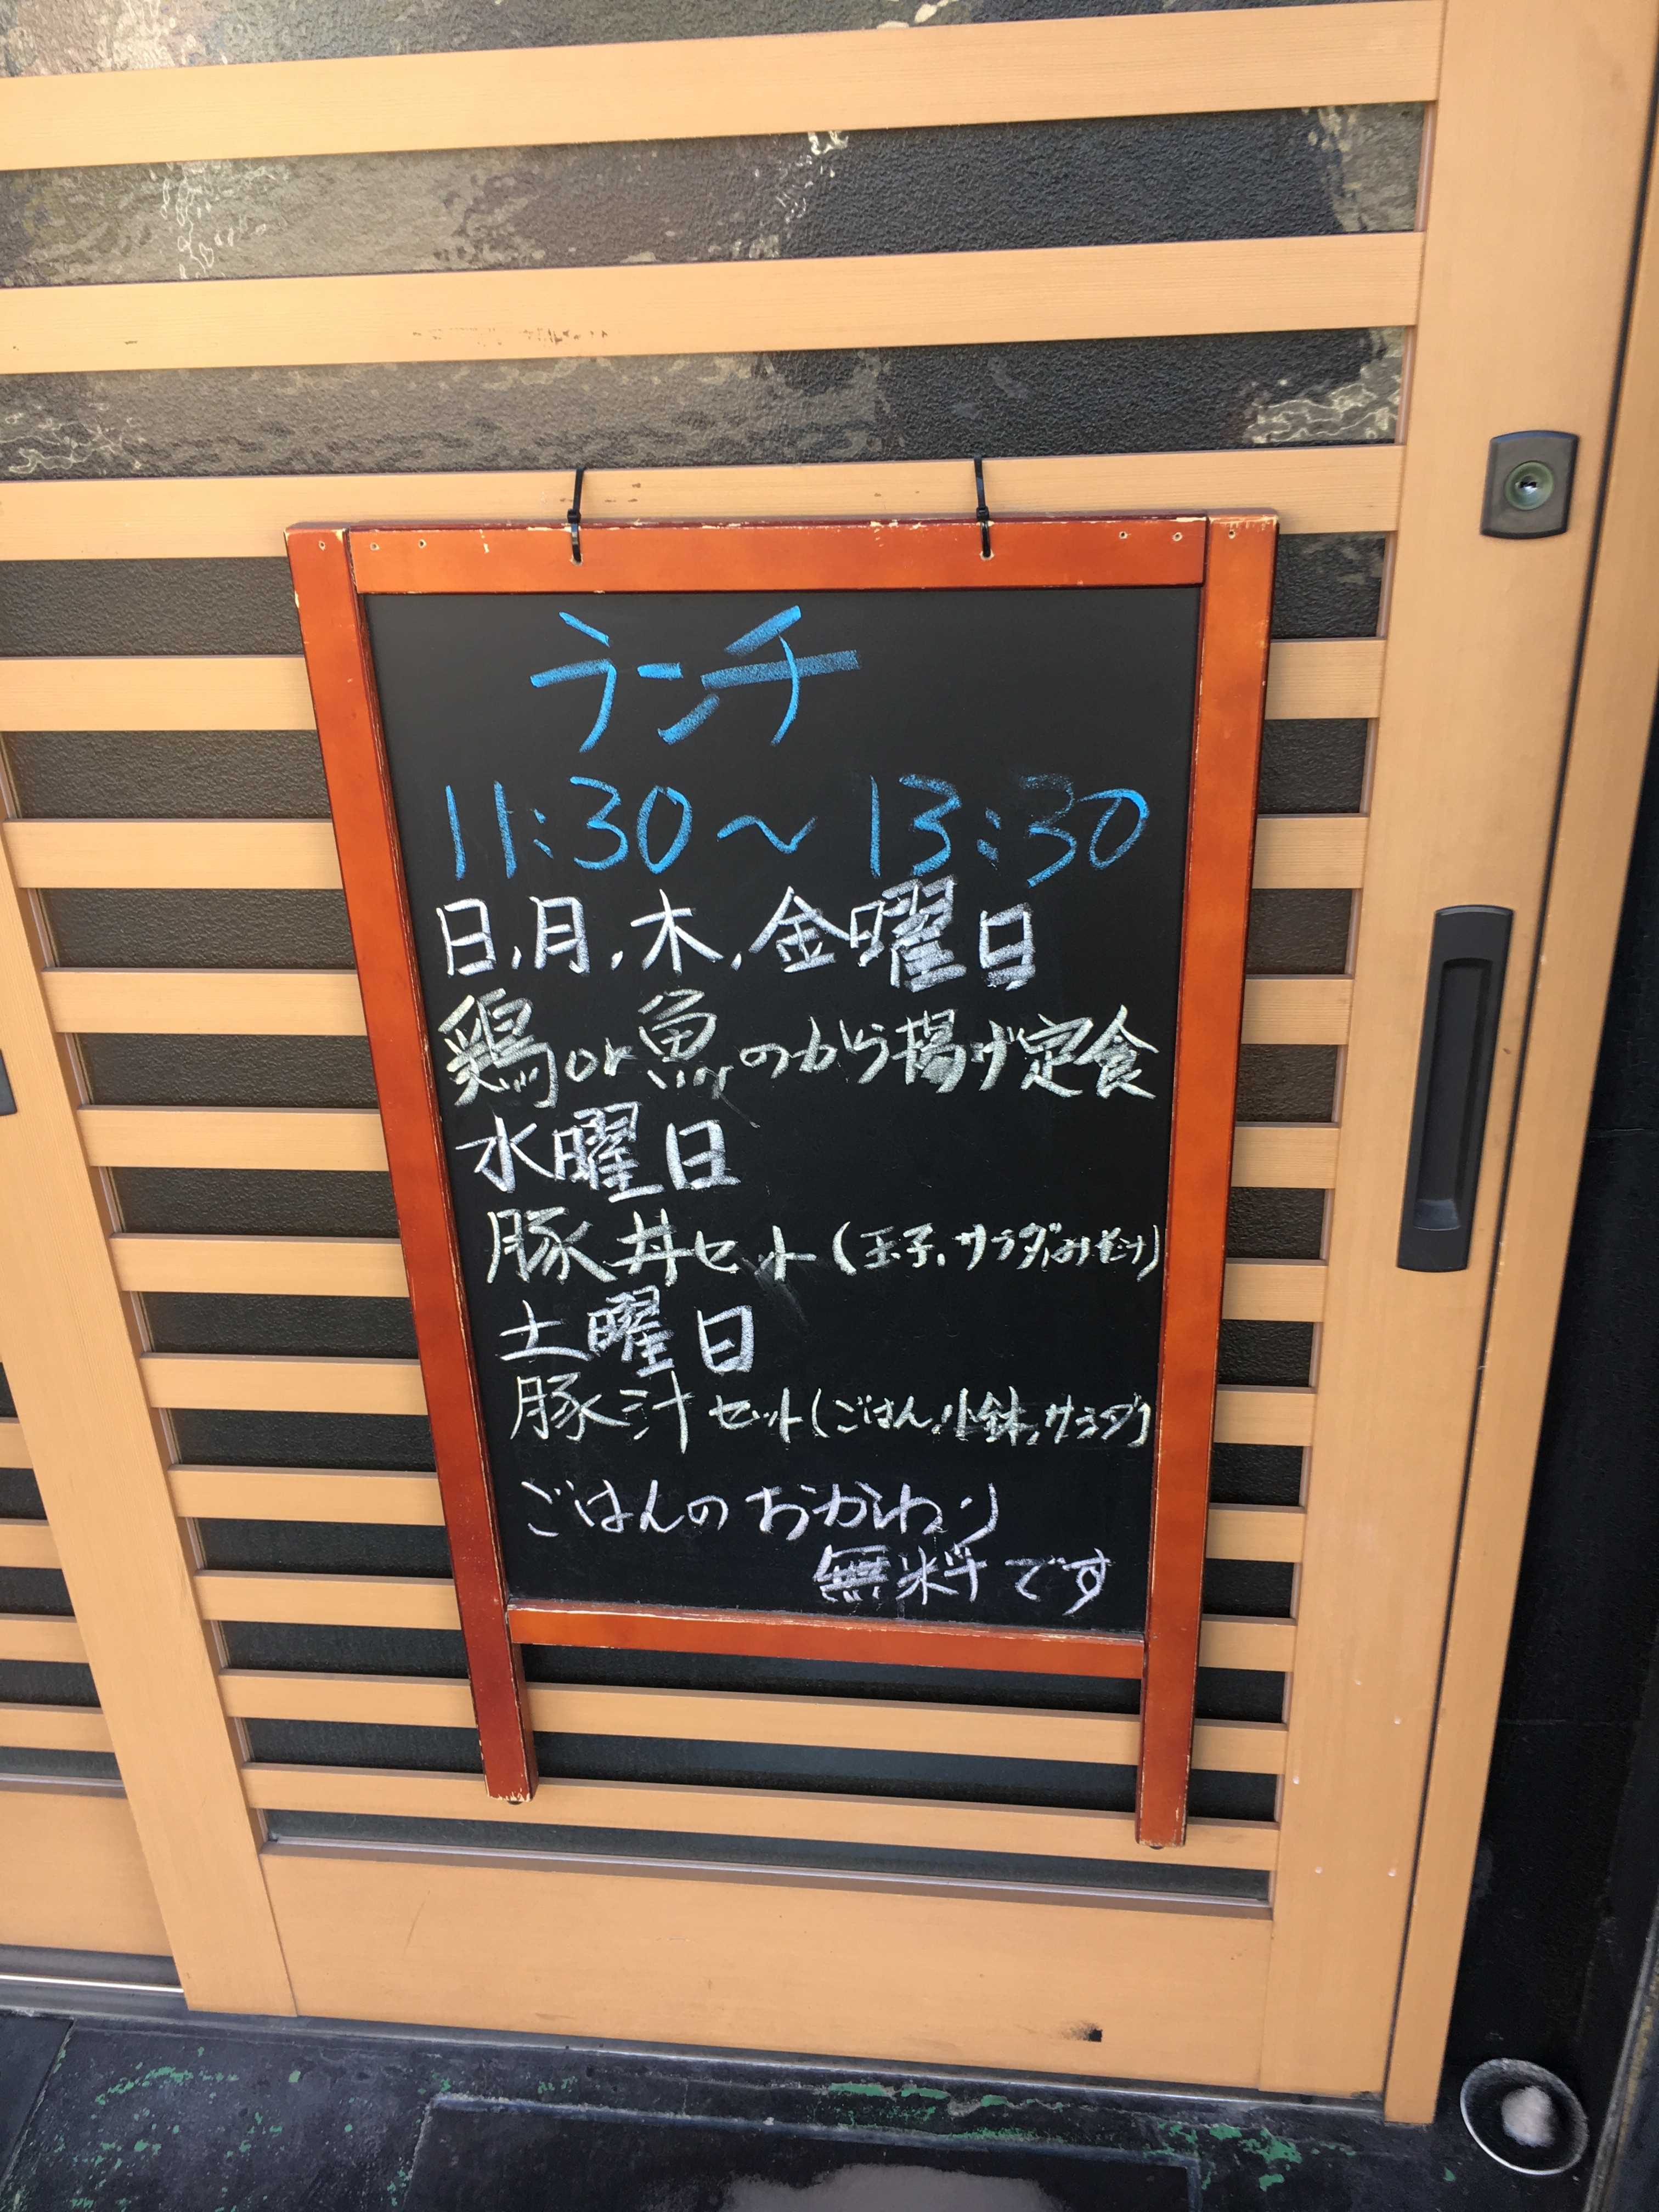 ランチ
11:30~13:30
日,月,木,金曜日
鶏or魚のから揚げ定食
水曜日
豚丼セット(玉子,サラダ,みそ汁)
土曜日
豚汁セット(ごはん,小鉢,サラダ)
ごはんのおかわり
無料です